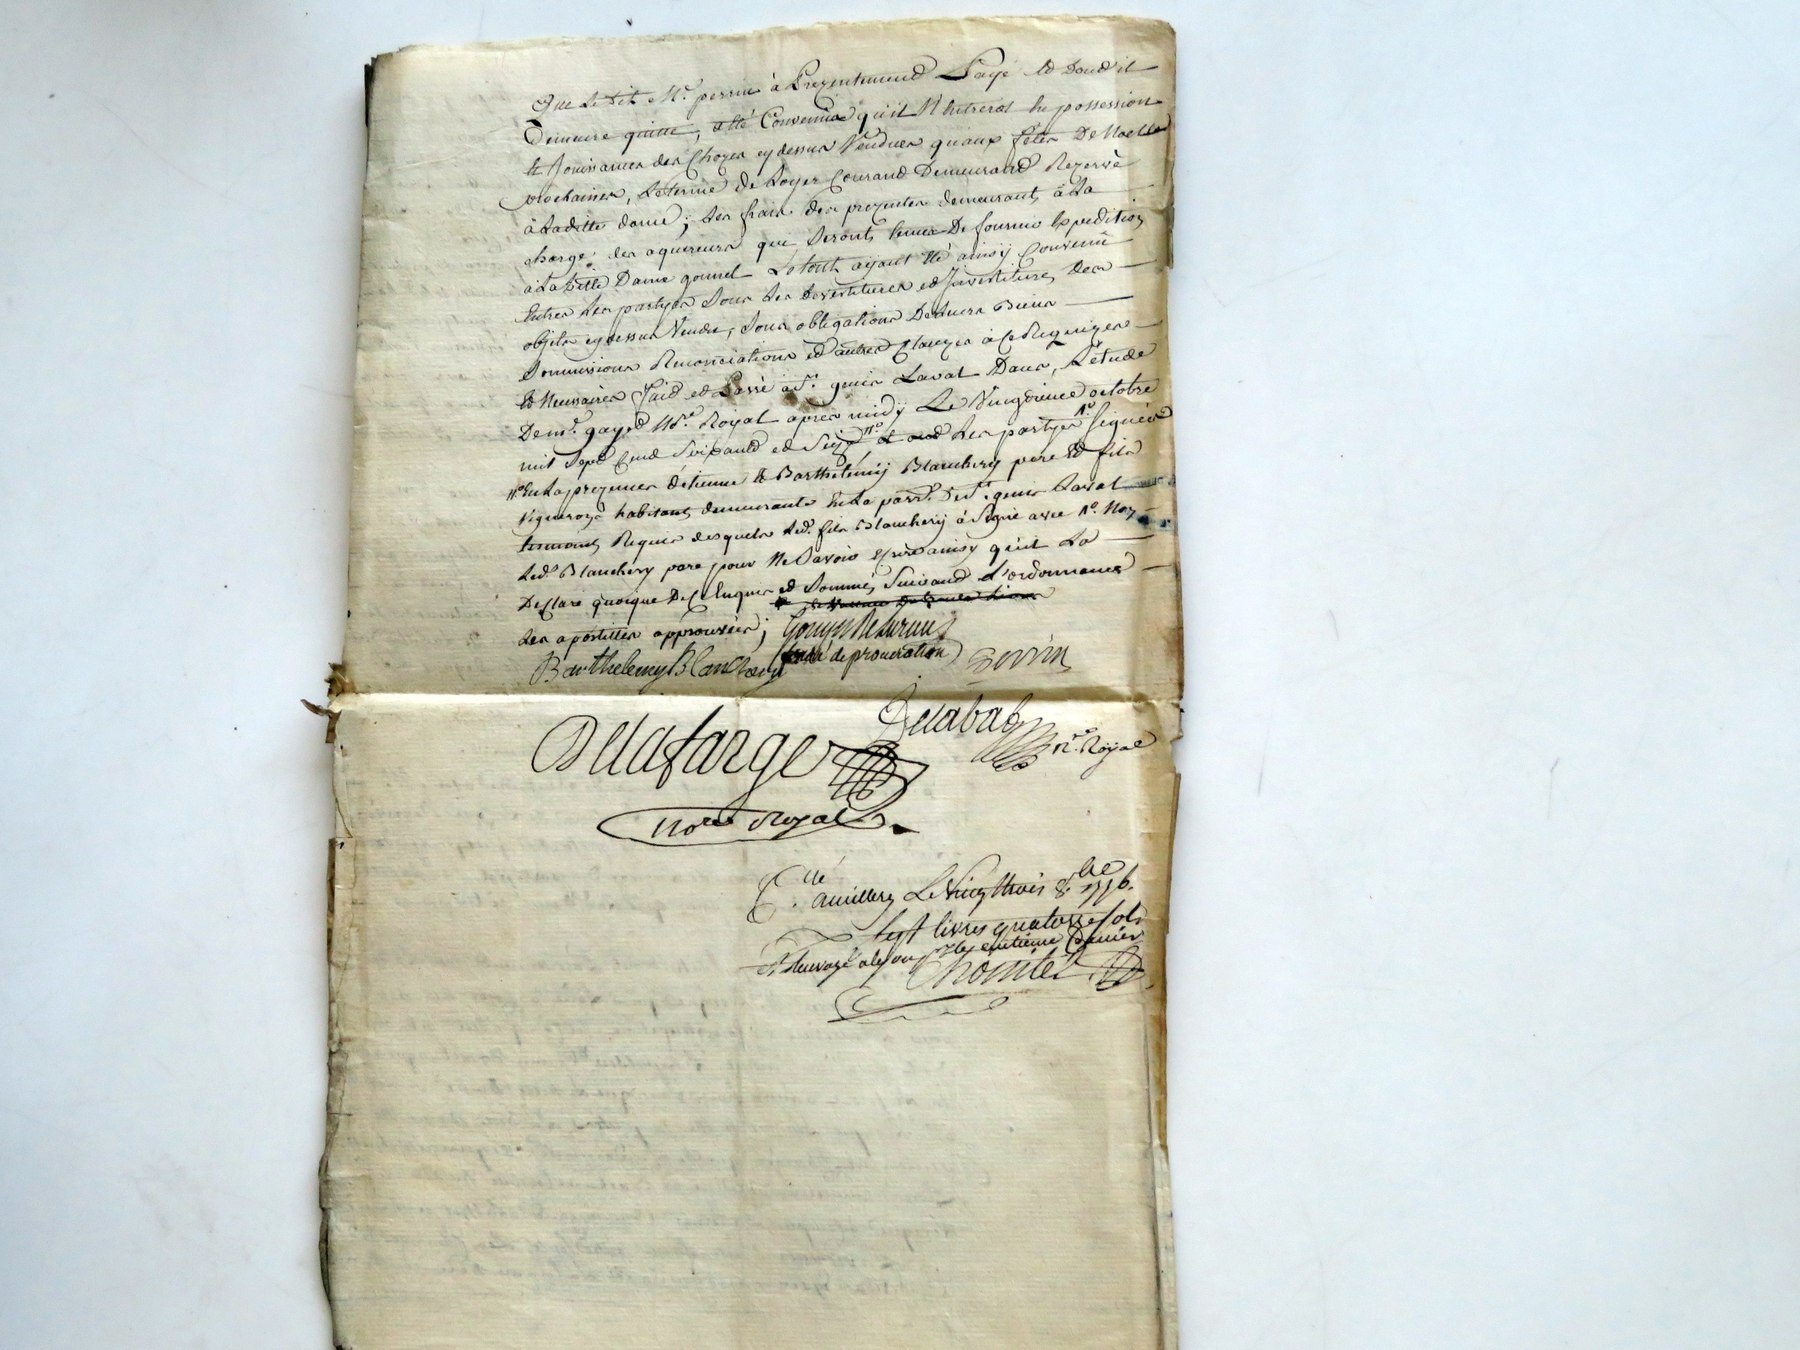 que le dit Mr. perrin à Prezentement Payé et dond il
Demeure quitte, a été Convenu qu'il N'entrerat En possession
Et Jouissance des Choses cy dessus Vendues quaux fêtes De Noelle
prochaines, Le terme de Loyer Courand Demeurand Rezervé
à Laditte dame; Les frais des prezentes demeurants à La
charge des aquereurs qui Seronts tenus De fournir Expedition
à La Ditte Dame gonnet Le tout ayant Eté ainsy Convenu
Entres Les partyes Sous Les Devestitures et Jnvestitures Des
objets cy dessus Vendus, Sous obligations De Leurs Biens
Soumissions Renonciations et autres Clauzes à Ce Requizes
Et Nessaires Faid et Passé à St. genis Laval Dans L'étude
De me. gayet Nre. Royal apres midy Le Vingtieme octobre
mil Sept Cend Soixante et Seize et ond Les partyes Signées
En La prezence d'étienne Et Barthelémy Blanchery pere Et fils
Vignerons habitants demeurants En La parr. De St. genis Laval
temoins Requis desquels Led. fils Blanchery à Signé avec No. Non
Led. Blanchery pere pour Ne Savoir Ecrire ainsy quil La
Declaré quoique De Ce Enquis et Sommé, Suivand L'ordonnance
Les apostilles approuvées;
fondé de procuration Perrin
Barthelemy Blanchery
Delafarge Delabat
Nre. Royal
Nore Royal
Clé
a millery Le Vingt trois 8bre 1776.
Sept livres quatorze sols
Chomtel